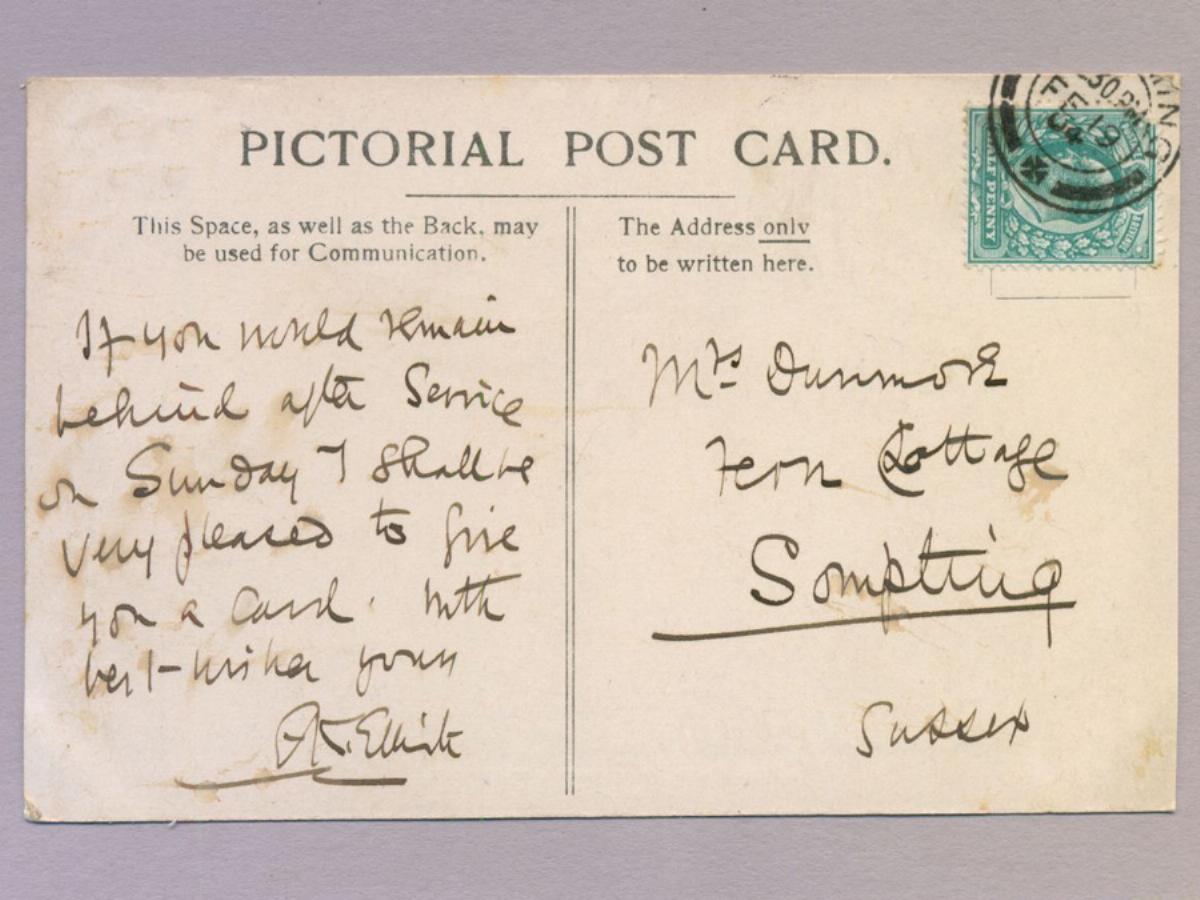 PICTORIAL POST CARD.
This Space, as well as the Back, may
be used for Communication.
The Address only
to be written here.
If you would remain
behind after Service
on Sunday I shall be
very pleased to give
you a card. With
best-wishes yours
Elliott
Mrs Dunmore
Fern Cottage
Sompting
Sussex
30 PM
FE 19
04
HALF PENNY